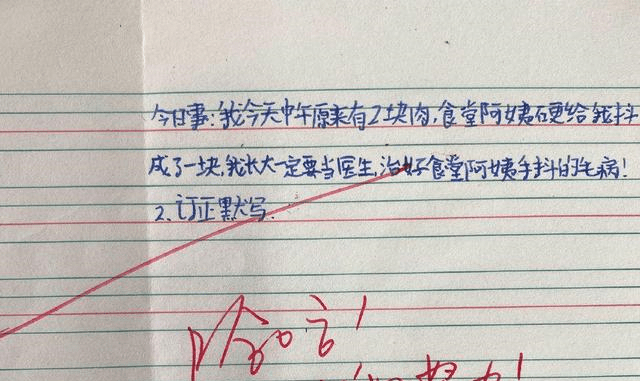 今日事:我今天中午原来有2块肉,食堂阿姨硬给我抖
成了一块,我长大一定要当医生,治好食堂阿姨手抖的毛病!
2.订正默写.
哈哈!